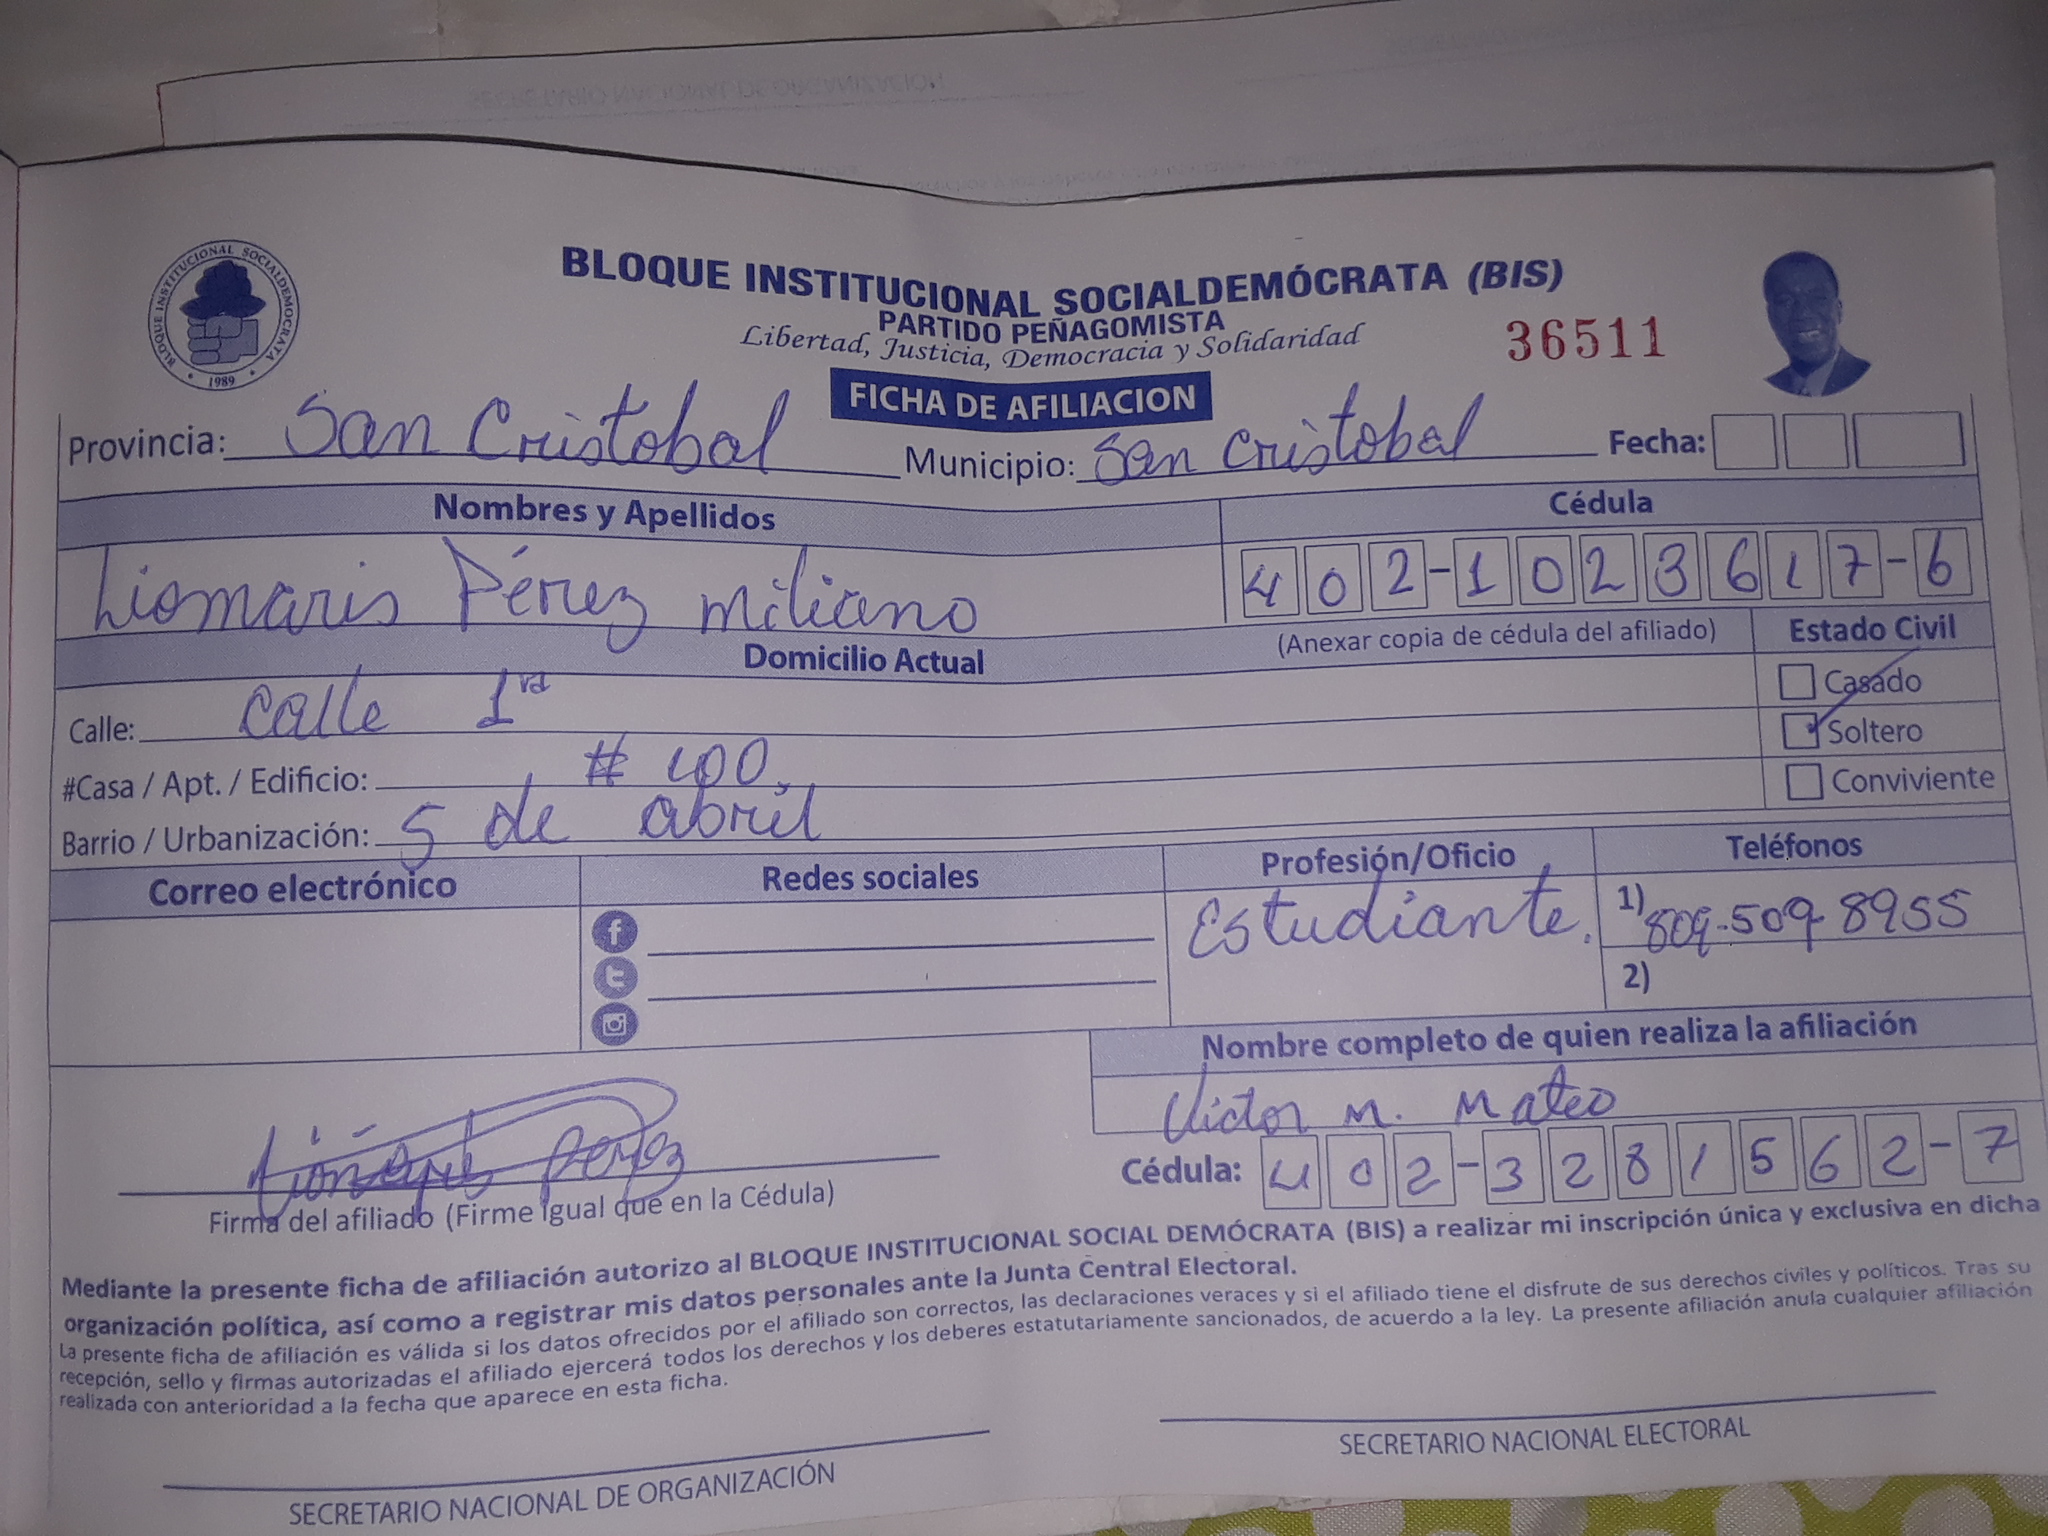 BLOQUE INSTITUCIONAL SOCIALDEMÓCRATA
1989
BLOQUE INSTITUCIONAL SOCIALDEMÓCRATA (BIS)
PARTIDO PEÑAGOMISTA
Libertad, Justicia, Democracia y Solidaridad
36511
FICHA DE AFILIACION
Provincia: San Cristobal Municipio: San Cristobal Fecha:
Nombres y Apellidos Cédula
Liomaris Pérez miliano 402-1023617-6
(Anexar copia de cédula del afiliado) Estado Civil
Domicilio Actual
Casado
Calle: calle 1ra
Soltero
#Casa / Apt. / Edificio: # 100.
Conviviente
Barrio / Urbanización: 5 de abril
Correo electrónico Redes sociales Profesión/Oficio Teléfonos
Estudiante. 1) 809-509-8955
2)
Nombre completo de quien realiza la afiliación
Victor M. Mateo
Cédula: 402-3281562-7
Perez
Firma del afiliado (Firme igual que en la Cédula)
Mediante la presente ficha de afiliación autorizo al BLOQUE INSTITUCIONAL SOCIAL DEMÓCRATA (BIS) a realizar mi inscripción única y exclusiva en dicha
organización política, así como a registrar mis datos personales ante la Junta Central Electoral.
La presente ficha de afiliación es válida si los datos ofrecidos por el afiliado son correctos, las declaraciones veraces y si el afiliado tiene el disfrute de sus derechos civiles y políticos. Tras su
recepción, sello y firmas autorizadas el afiliado ejercerá todos los derechos y los deberes estatutariamente sancionados, de acuerdo a la ley. La presente afiliación anula cualquier afiliación
realizada con anterioridad a la fecha que aparece en esta ficha.
SECRETARIO NACIONAL DE ORGANIZACIÓN
SECRETARIO NACIONAL ELECTORAL